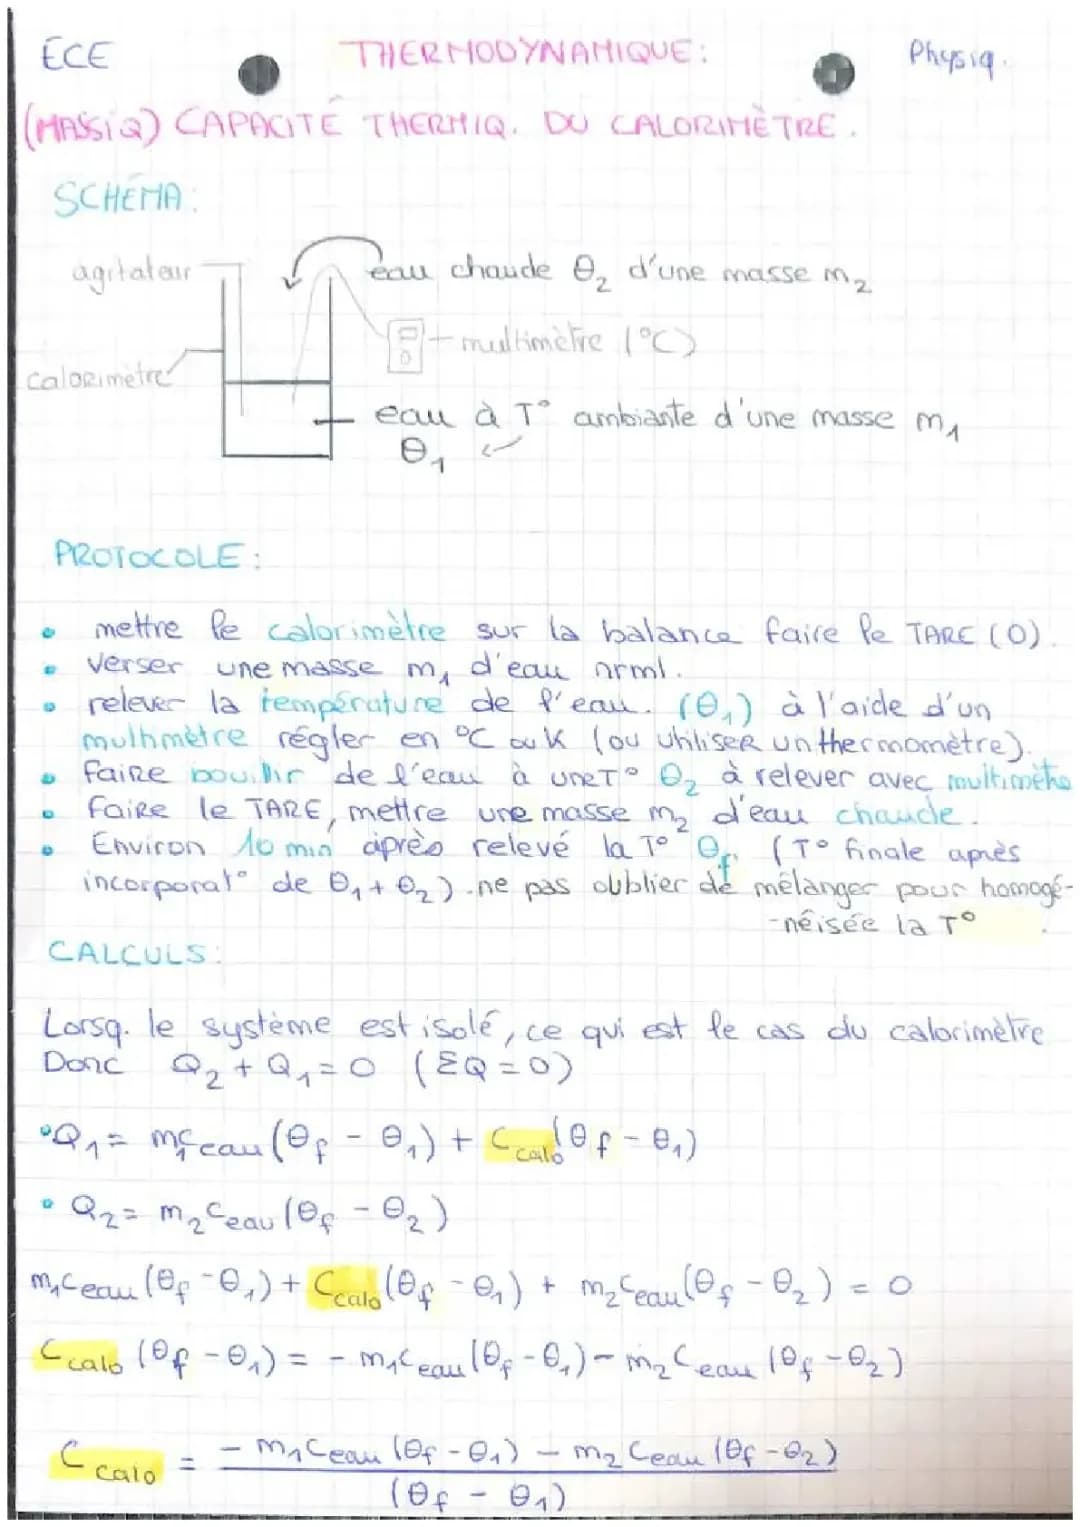 ECE THERMODYNAMIQUE: Physiq.
(MASSIQ) CAPACITÉ THERMIQ. DU CALORIMÈTRE.
SCHÉMA:
agitateur eau chaude θ₂ d'une masse m₂
multimètre (°C)
calorimètre
eau à T° ambiante d'une masse m₁
θ₁
PROTOCOLE:
• mettre le calorimètre sur la balance faire le TARE (0).
• verser une masse m₁ d'eau nrml.
• relever la température de l'eau. (θ₁) à l'aide d'un
multimètre régler en °C ou K (ou utiliser un thermomètre).
• faire bouillir de l'eau à une T° θ₂ à relever avec multimètre
• faire le TARE, mettre une masse m₂ d'eau chaude.
• Environ 10 min après relevé la T° θf. (T° finale après
incorporat° de θ₁ + θ₂). ne pas oublier de mélanger pour homogé-
-néisée la T°
CALCULS:
Lorsq. le système est isolé, ce qui est le cas du calorimètre
Donc Q₂ + Q₁ = 0 (ΣQ = 0)
• Q₁ = m₁ceau (θf - θ₁) + Ccalo (θf - θ₁)
• Q₂ = m₂ceau (θf - θ₂)
m₁ceau (θf - θ₁) + Ccalo (θf - θ₁) + m₂ceau (θf - θ₂) = 0
Ccalo (θf - θ₁) = - m₁ceau (θf - θ₁) - m₂ceau (θf - θ₂)
Ccalo = - m₁ceau (θf - θ₁) - m₂ceau (θf - θ₂)
(θf - θ₁)